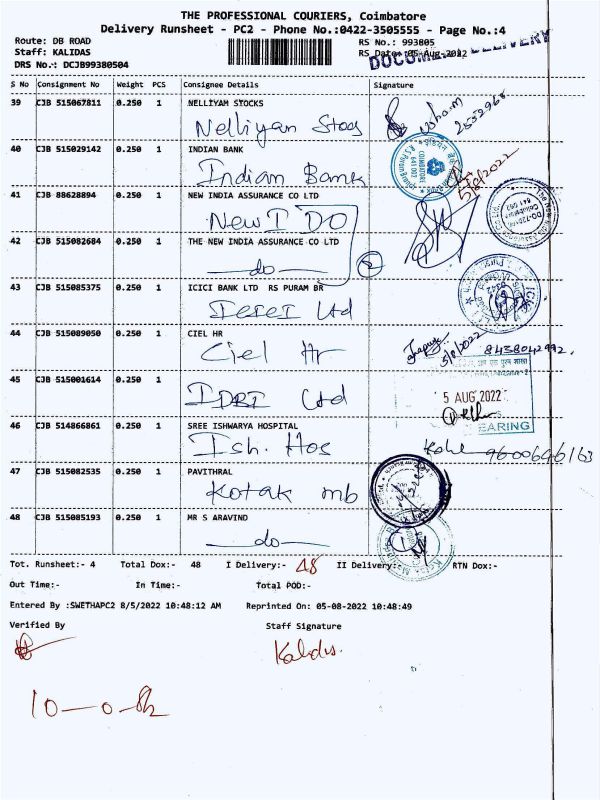 THE PROFESSIONAL COURIERS, Coimbatore
Delivery Runsheet - PC2 - Phone No.:0422-3505555 - Page No.:4
Route: DB ROAD
RS No.: 993805
Staff: KALIDAS
RS Date: 05-Aug-2022
DOCUMENT DELIVERY
DRS No.: DCJB99380504
S No Consignment No Weight PCS Consignee Details Signature
39 CJB 515067811 0.250 1 NELLIYAM STOCKS
Nelliyan Stocs
40 CJB 515029142 0.250 1 INDIAN BANK
Indian Bank
5/8/2022
41 CJB 88628894 0.250 1 NEW INDIA ASSURANCE CO LTD
New I DO
42 CJB 515082684 0.250 1 THE NEW INDIA ASSURANCE CO LTD
do
2
43 CJB 515085375 0.250 1 ICICI BANK LTD RS PURAM BR
Icici Ltd
44 CJB 515089050 0.250 1 CIEL HR
Ciel Hr
5/8/2022 8438042992.
45 CJB 515001614 0.250 1
IDBI Ltd
5 AUG 2022
CLEARING
46 CJB 514866861 0.250 1 SREE ISHWARYA HOSPITAL
Ish. Hos
9600646163
47 CJB 515082535 0.250 1 PAVITHRAL
Kotak mb
48 CJB 515085193 0.250 1 MR S ARAVIND
do
Tot. Runsheet:- 4 Total Dox:- 48 I Delivery:- 48 II Delivery:- RTN Dox:-
Out Time:- In Time:- Total POD:-
Entered By :SWETHAPC2 8/5/2022 10:48:12 AM Reprinted On: 05-08-2022 10:48:49
Verified By Staff Signature
Kalidas.